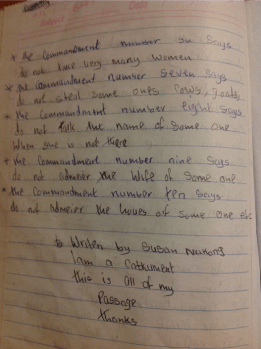 * the Commandment number six says
do not love very many women
* the commandment number seven says
do not steal some ones cows, goods
* the Commandment number eight says
do not talk the name of some one
when she is not there
* the Commandment number nine says
do not admeier the wife of some one
* the Commandment number ten says
do not admeier the houes of some one etc
Written by Susan
I am a Catument
this is all of my
Passage
thanks